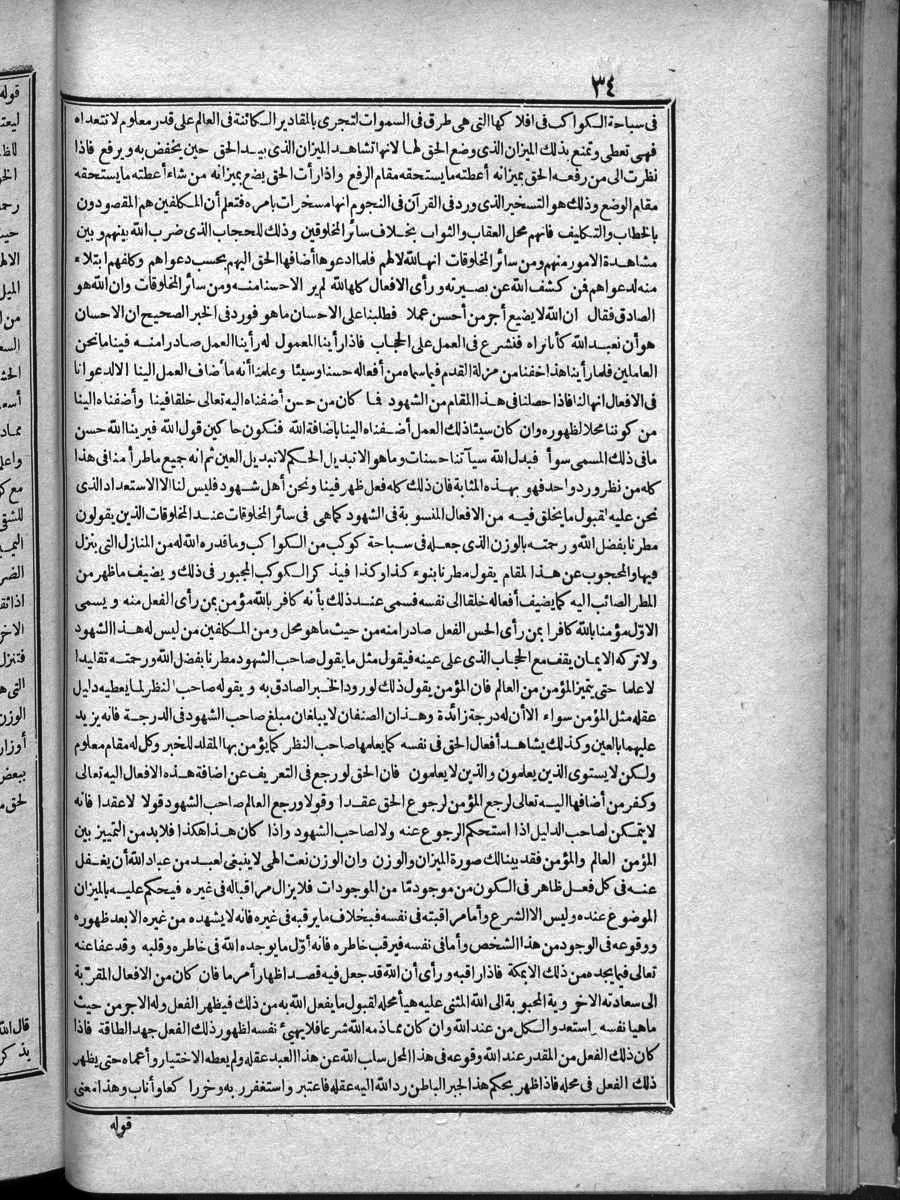 ٣٤
فى سباحة الكواكب فى افلاكها التى هى طرق فى السموات لتجرى بالمقادير الكائنة فى العالم على قدر معلوم لا تتعداه
فهى تعطى وتمنع بذلك الميزان الذى وضع الحق لها لانها تشاهد الميزان الذى بيد الحق حين يخفض به ويرفع فاذا
نظرت الى من رفعه الحق بميزانه أعطته ما يستحقه مقام الرفع واذا رأت الحق يضع بميزانه من شاء أعطته ما يستحقه
مقام الوضع وذلك هو التسخير الذى ورد فى القرآن فى النجوم انها مسخرات بامره فتعلم أن المكلفين هم المقصودون
بالخطاب والتكليف فانهم محل العقاب والثواب بخلاف سائر المخلوقين وذلك للحجاب الذى ضرب الله بينهم وبين
مشاهدة الامور منهم ومن سائر المخلوقات انها لله لا لهم فلما ادعوها أضافها الحق اليهم بحسب دعواهم وكلفهم ابتلاء
منه لدعواهم فمن كشف الله عن بصيرته ورأى الافعال كلها لله لم ير الا حسنا منه ومن سائر المخلوقات وان الله هو
الصادق فقال ان الله لا يضيع أجر من أحسن عملا فطلبنا على الاحسان ما هو فورد فى الخبر الصحيح ان الاحسان
هو أن نعبد الله كأنا نراه فنشرع فى العمل على الحجاب فاذا رأينا المعمول له رأينا العمل صادرا منه فينا ما نحن
العاملين فلما رأينا هذا خفنا من مزلة القدم فيما سماه من أفعاله حسنا وسيئا وعلمنا أنه ما أضاف العمل الينا الا لدعوانا
فى الافعال انها لنا فاذا حصلنا فى هذا المقام من الشهود فما كان من حسن أضفناه اليه تعالى خلقا فينا وأضفناه الينا
من كوننا محلا لظهوره وان كان سيئا ذلك العمل أضفناه الينا باضافة الله فنكون حاكين قول الله فيرينا الله حسن
ما فى ذلك المسمى سوأ فبدل الله سيآتنا حسنات وما هو الا تبديل الحكم لا تبديل العين ثم انه جميع ما طرأ منا فى هذا
كله من نظر ورد واحد فهو بهذه المثابة فان ذلك كله فعل ظهر فينا ونحن أهل شهود فليس لنا الا الاستعداد الذى
نحن عليه لقبول ما يخلق فيه من الافعال المنسوبة فى الشهود كما هى فى سائر المخلوقات عند المخلوقات الذين يقولون
مطرنا بفضل الله ورحمته بالوزن الذى جعله فى سباحة كوكب من الكواكب وما قدره الله له من المنازل التى ينزل
فيها والمحجوب عن هذا المقام يقول مطرنا بنوء كذا وكذا فيذكر الكوكب المجبور فى ذلك ويضيف ما ظهر من
المطر الصائب اليه كما يضيف أفعاله خلقا الى نفسه فسمى عند ذلك بأنه كافر بالله مؤمن بمن رأى الفعل منه ويسمى
الاول مؤمنا بالله كافرا بمن رأى الحس الفعل صادرا منه من حيث ما هو محل ومن المكلفين من ليس له هذا الشهود
ولا تركه الايمان يقف مع الحجاب الذى على عينه فيقول مثل ما يقول صاحب الشهود مطرنا بفضل الله ورحمته تقليدا
لا علما حتى يتميز المؤمن من العالم فان المؤمن يقول ذلك لورود الخبر الصادق به ويقوله صاحب النظر لما يعطيه دليل
عقله مثل المؤمن سواء الا أن له درجة زائدة وهذان الصنفان لا يبلغان مبلغ صاحب الشهود فى الدرجة فانه يزيد
عليهما بالعين وكذلك يشاهد أفعال الحق فى نفسه كما يعلمها صاحب النظر كما يؤمن بها المقلد للخبر وكل له مقام معلوم
ولكن لا يستوى الذين يعلمون والذين لا يعلمون فان الحق لو رجع فى التعريف عن اضافة هذه الافعال اليه تعالى
وكفر من أضافها اليه تعالى لرجع المؤمن لرجوع الحق عقدا وقولا ورجع العالم صاحب الشهود قولا لا عقدا فانه
لا يتمكن لصاحب الدليل اذا استحكم الرجوع عنه ولا لصاحب الشهود واذا كان هذا هكذا فلا بد من التمييز بين
المؤمن العالم والمؤمن فقد بينا لك صورة الميزان والوزن وان الوزن نعت الهى لا ينبغى لعبد من عباد الله أن يغفل
عنه فى كل فعل ظاهر فى الكون من موجود ما من الموجودات فلا يزال مراقباله فى غيره فيحكم عليه بالميزان
الموضوع عنده وليس الا الشرع وأما مراقبته فى نفسه فبخلاف ما يرقبه فى غيره فانه لا يشهده من غيره الا بعد ظهوره
ووقوعه فى الوجود من هذا الشخص وأما فى نفسه فيرقب خاطره فانه أول ما يوجده الله فى خاطره وقلبه وقد عفا عنه
تعالى فيما يجده من ذلك الا بمكة فاذا راقبه ورأى أن الله قد جعل فيه قصد اظهار أمر ما فان كان من الافعال المقربة
الى سعادته الاخروية المحبوبة الى الله المثنى عليه هيأ محله لقبول ما يفعل الله به من ذلك فيظهر الفعل وله الاجر من حيث
ما هيا نفسه استعد والكل من عند الله وان كان مما ذمه الله شرعا فلا يهيئ نفسه لظهور ذلك الفعل جهد الطاقة فاذا
كان ذلك الفعل من المقدر عند الله وقوعه فى هذا المحل سلب الله عن هذا العبد عقله ولم يعطه الاختيار وأعماه حتى يظهر
ذلك الفعل فى محله فاذا ظهر بحكم هذا الجبر الباطن رد الله اليه عقله فاعتبر واستغفر ربه وخر راكعا وأناب وهذا معنى
قوله